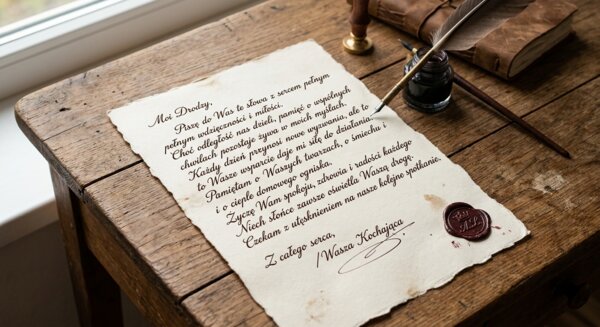 Moi Drodzy,
Piszę do Was te słowa z sercem pełnym
pełnym wdzięczności i miłości.
Choć odległość nas dzieli, pamięć o wspólnych
chwilach pozostaje żywa w moich myślach.
Każdy dzień przynosi nowe wyzwania, ale to
to Wasze wsparcie daje mi siłę do działania.
Pamiętam o Waszych twarzach, o śmiechu i
i o cieple domowego ogniska.
Życzę Wam spokoju, zdrowia i radości każdego
Niech słońce zawsze oświetla Waszą drogę.
Czekam z utęsknieniem na nasze kolejne spotkanie.
Z całego serca,
/Wasza Kochająca